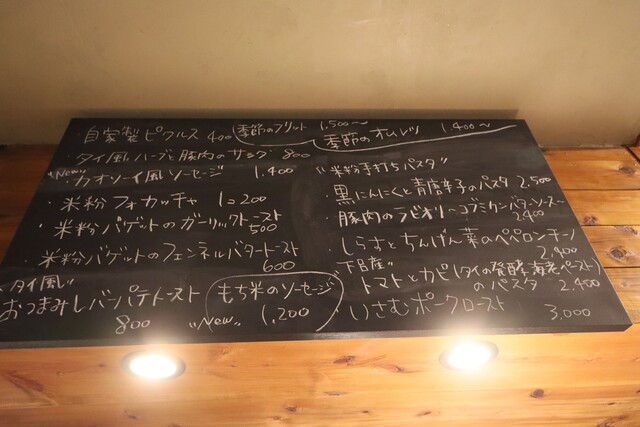 ・自家製ピクルス 400
季節のフリット 1,500〜
季節のオムレツ 1,400〜
・タイ風ハーブと豚肉のサラダ 800
"New"
・カオソーイ風ソーセージ 1,400
・米粉フォカッチャ 1コ200
・米粉バゲットのガーリックトースト
500
・米粉バゲットのフェンネルバタートースト
600
"タイ風"
おつまみレバーパテトースト
800
もち米のソーセージ
"New" 1,200
"米粉手打ちパスタ"
・黒にんにくと青唐辛子のパスタ 2,500
・豚肉のラビオリ〜ゴブミカンバターソース〜
2,400
・しらすとちんげん菜のペペロンチーノ
2,400
下呂産"
・トマトとカピ(タイの発酵海老ペースト)
のパスタ 2,400
・いさむポークロースト
3,000